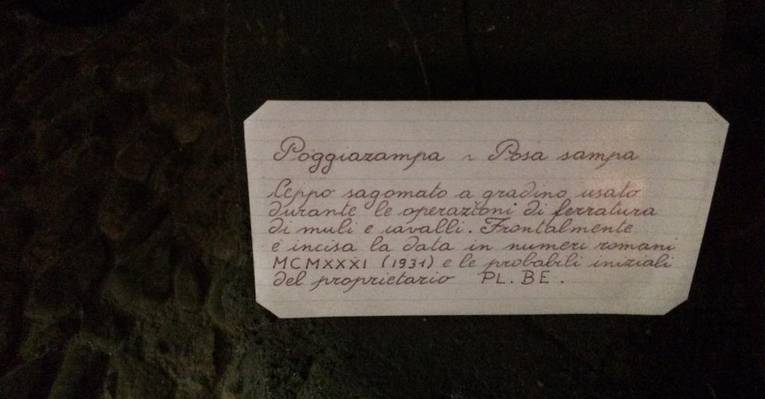 Poggiazampa ~ Posa sampa
Ceppo sagomato a gradino usato
durante le operazioni di ferratura
di muli e cavalli. Frontalmente
è incisa la data in numeri romani
MCMXXXI (1931) e le probabili iniziali
del proprietario PL. BE.